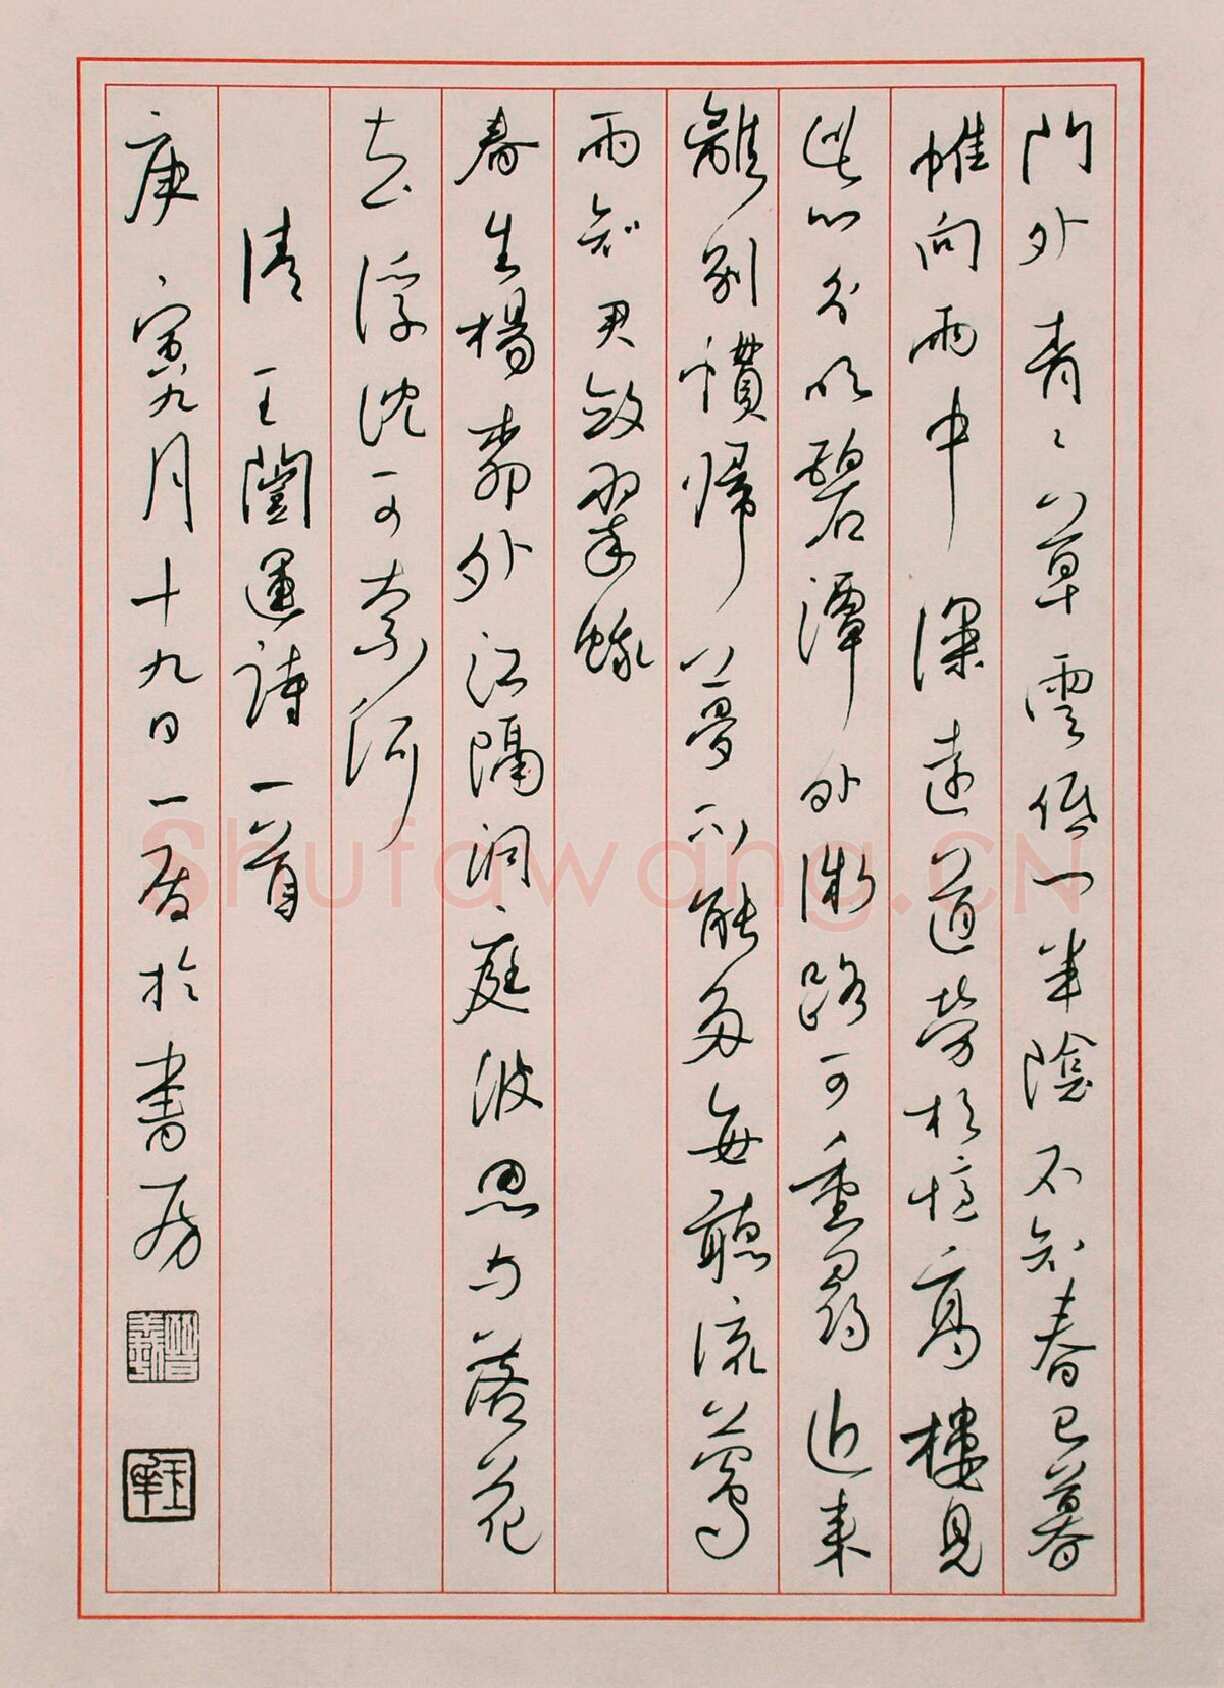 門外青〻草雲低一半陰不知春已暮
惟向雨中深遠道勞相憶高樓見
此心分明碧潭外微路可重尋近來
離別慣歸夢不能多每聽流鶯
雨知君斂翠蛾
春生楊柳外江隔洞庭波思與落花
去浮沈可奈何
清王闓運詩一首
庚寅九月十九日一於書房
Shufawang.CN